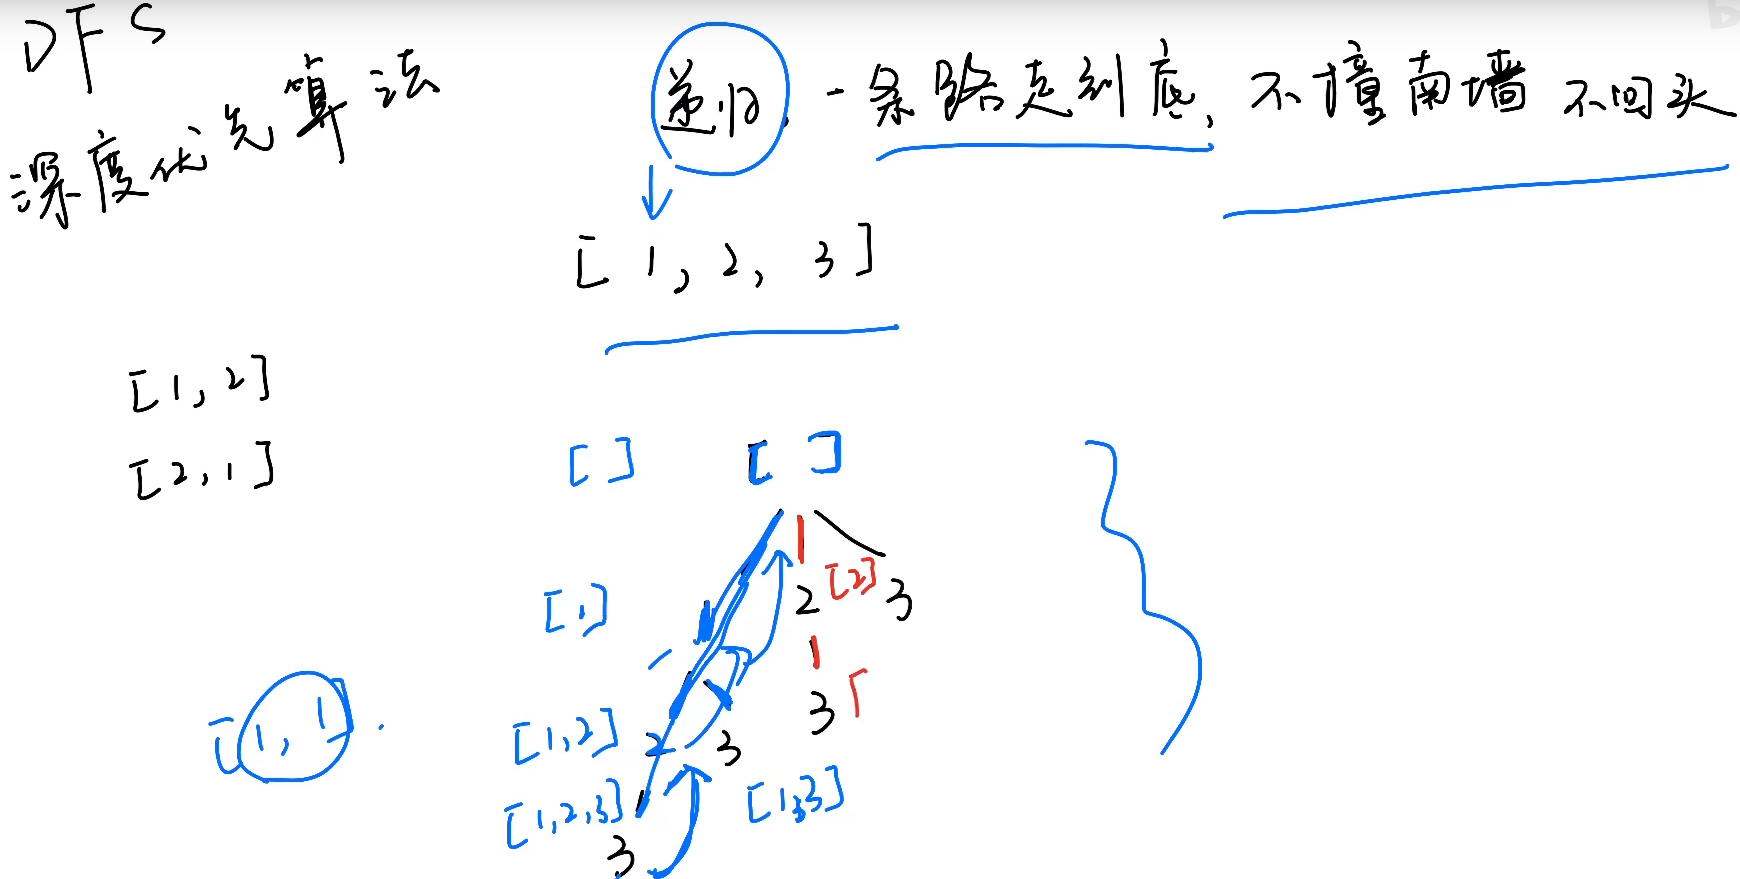 DFS
深度优先算法
递归. 一条路走到底, 不撞南墙 不回头
[ 1, 2, 3 ]
[1, 2]
[2, 1]
[ ] [ ]
[1] 2 [2] 3
[1, 1].
[1,2] 2 3 3
[1,2,3] [1,3]
3